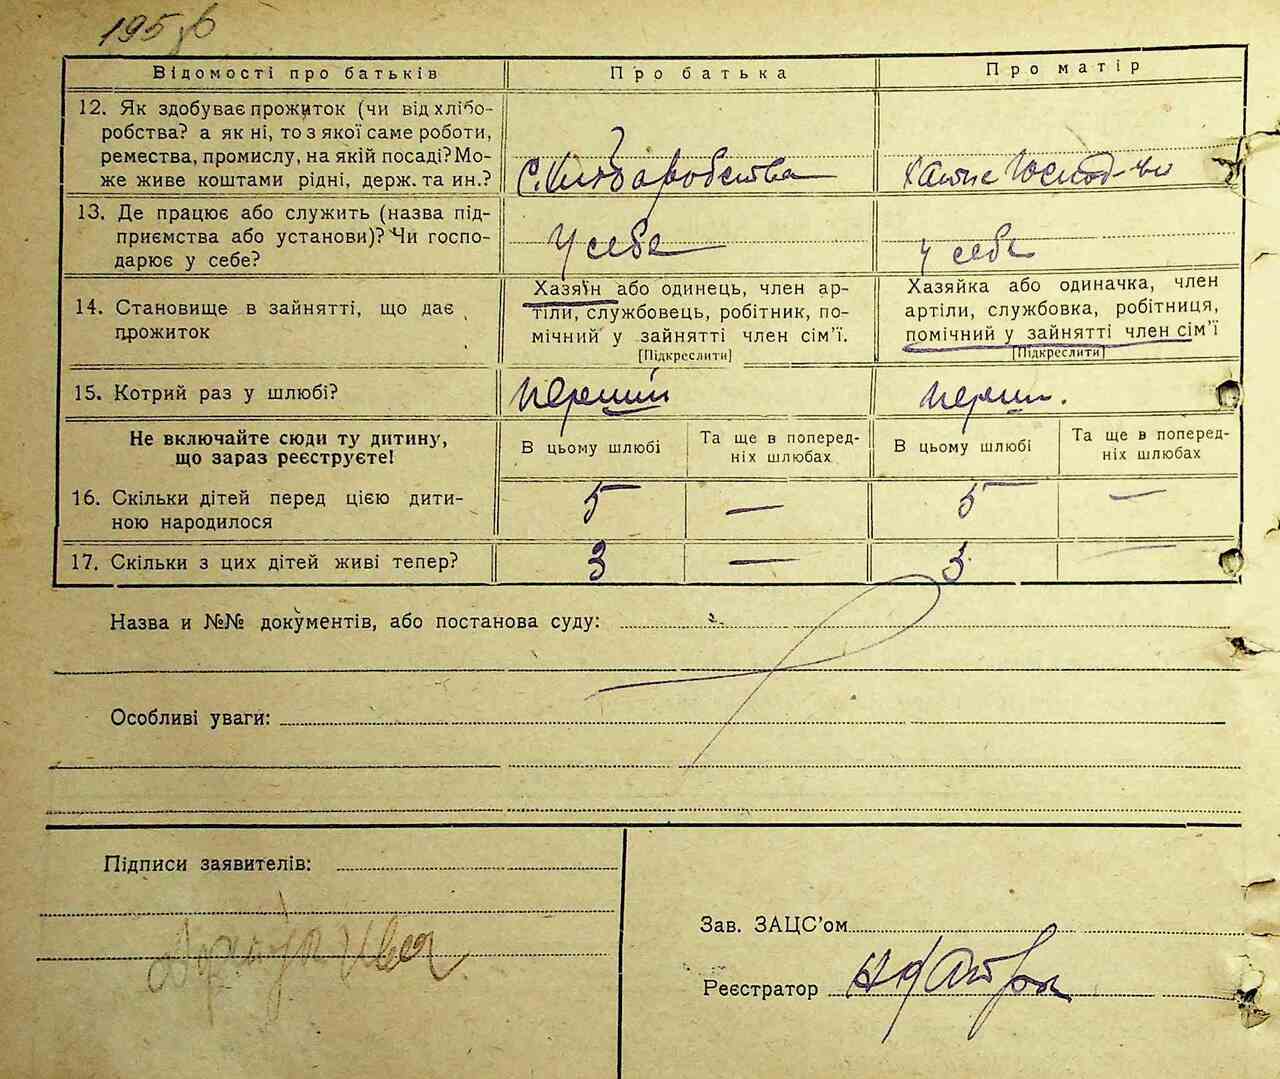 195зв
Відомості про батьків
Про батька
Про матір
12. Як здобуває прожиток (чи від хлібо-
робства? а як ні, то з якої саме роботи,
ремества, промислу, на якій посаді? Мо-
же живе коштами рідні, держ. та ин.?
С. Хліборобства
Хатнє Господ-во
13. Де працює або служить (назва під-
приємства або установи)? Чи госпо-
дарює у себе?
У себе
у себе
14. Становище в зайнятті, що дає
прожиток
Хазяїн або одинець, член ар-
тіли, службовець, робітник, по-
мічний у зайнятті член сім'ї.
[Підкреслити]
Хазяйка або одиначка, член
артіли, службовка, робітниця,
помічний у зайнятті член сім'ї
[Підкреслити]
15. Котрий раз у шлюбі?
Перший
перш.
Не включайте сюди ту дитину,
що зараз реєструєте!
В цьому шлюбі
Та ще в поперед-
ніх шлюбах
В цьому шлюбі
Та ще в поперед-
ніх шлюбах
16. Скільки дітей перед цією дити-
ною народилося
5
—
5
—
17. Скільки з цих дітей живі тепер?
3
—
3
—
Назва и №№ документів, або постанова суду:
Особливі уваги:
Підписи заявителів:
Зав. ЗАЦС'ом
Реєстратор